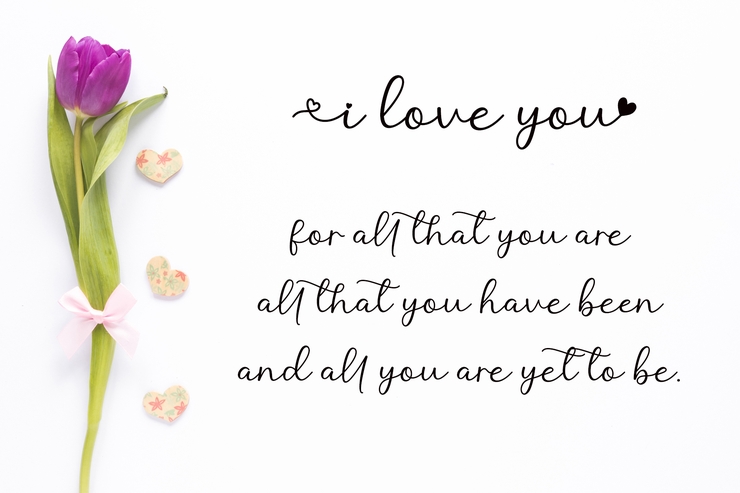 i love you
for all that you are
all that you have been
and all you are yet to be.